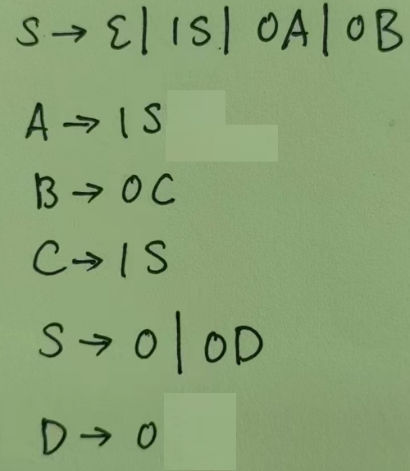 S → ε | 1S | 0A | 0B
A → 1S
B → 0C
C → 1S
S → 0 | 0D
D → 0